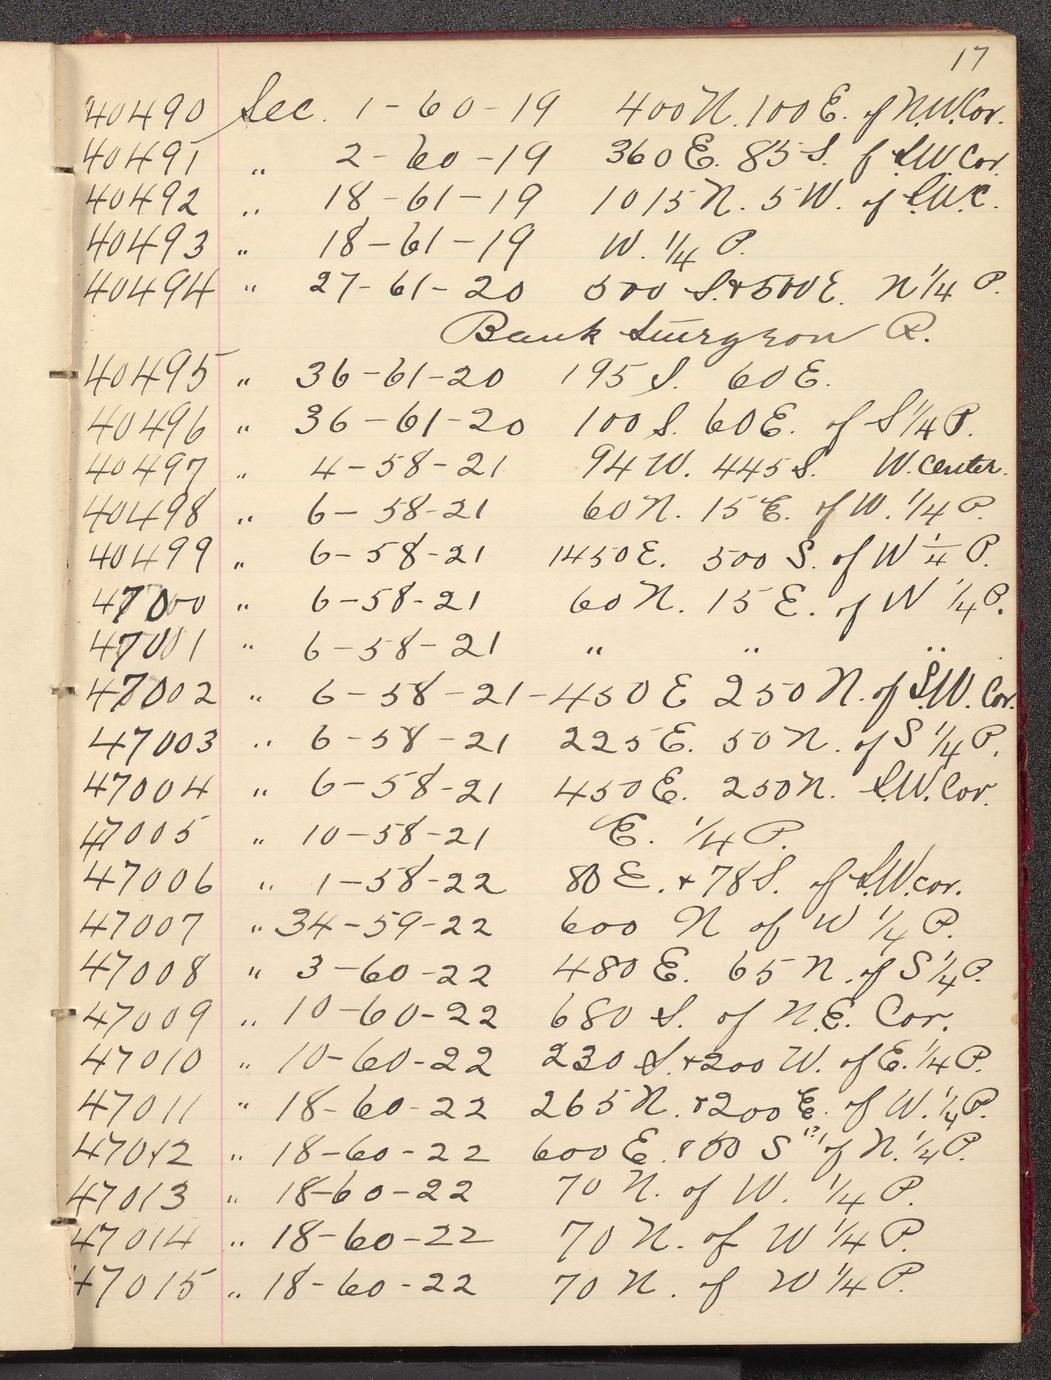 17
40490 Sec. 1-60-19 400 N. 100 E. of N.W. Cor.
40491 " 2-60-19 360 E. 85 S. of S.W. Cor.
40492 " 18-61-19 1015 N. 5 W. of S.W.C.
40493 " 18-61-19 W. 1/4 P.
40494 " 27-61-20 500 S. & 500 E. N 1/4 P.
Bank Sturgeon R.
40495 " 36-61-20 195 S. 60 E.
40496 " 36-61-20 100 S. 60 E. of S 1/4 P.
40497 " 4-58-21 94 W. 445 S. W. center.
40498 " 6-58-21 60 N. 15 E. of W. 1/4 P.
40499 " 6-58-21 1450 E. 500 S. of W 1/4 P.
47000 " 6-58-21 60 N. 15 E. of W 1/4 P.
47001 " 6-58-21 " " "
47002 " 6-58-21-450 E 250 N. of S.W. Cor.
47003 " 6-58-21 225 E. 50 N. of S 1/4 P.
47004 " 6-58-21 450 E. 250 N. S.W. Cor.
47005 " 10-58-21 E. 1/4 P.
47006 " 1-58-22 80 E. & 78 S. of S.W. cor.
47007 " 34-59-22 600 N of W 1/4 P.
47008 " 3-60-22 480 E. 65 N. of S 1/4 P.
47009 " 10-60-22 680 S. of N.E. Cor.
47010 " 10-60-22 230 S. & 200 W. of E. 1/4 P.
47011 " 18-60-22 265 N. & 200 E. of W. 1/4 P.
47012 " 18-60-22 600 E. & 50 S (?) of N. 1/4 P.
47013 " 18-60-22 70 N. of W. 1/4 P.
47014 " 18-60-22 70 N. of W 1/4 P.
47015 " 18-60-22 70 N. of W 1/4 P.